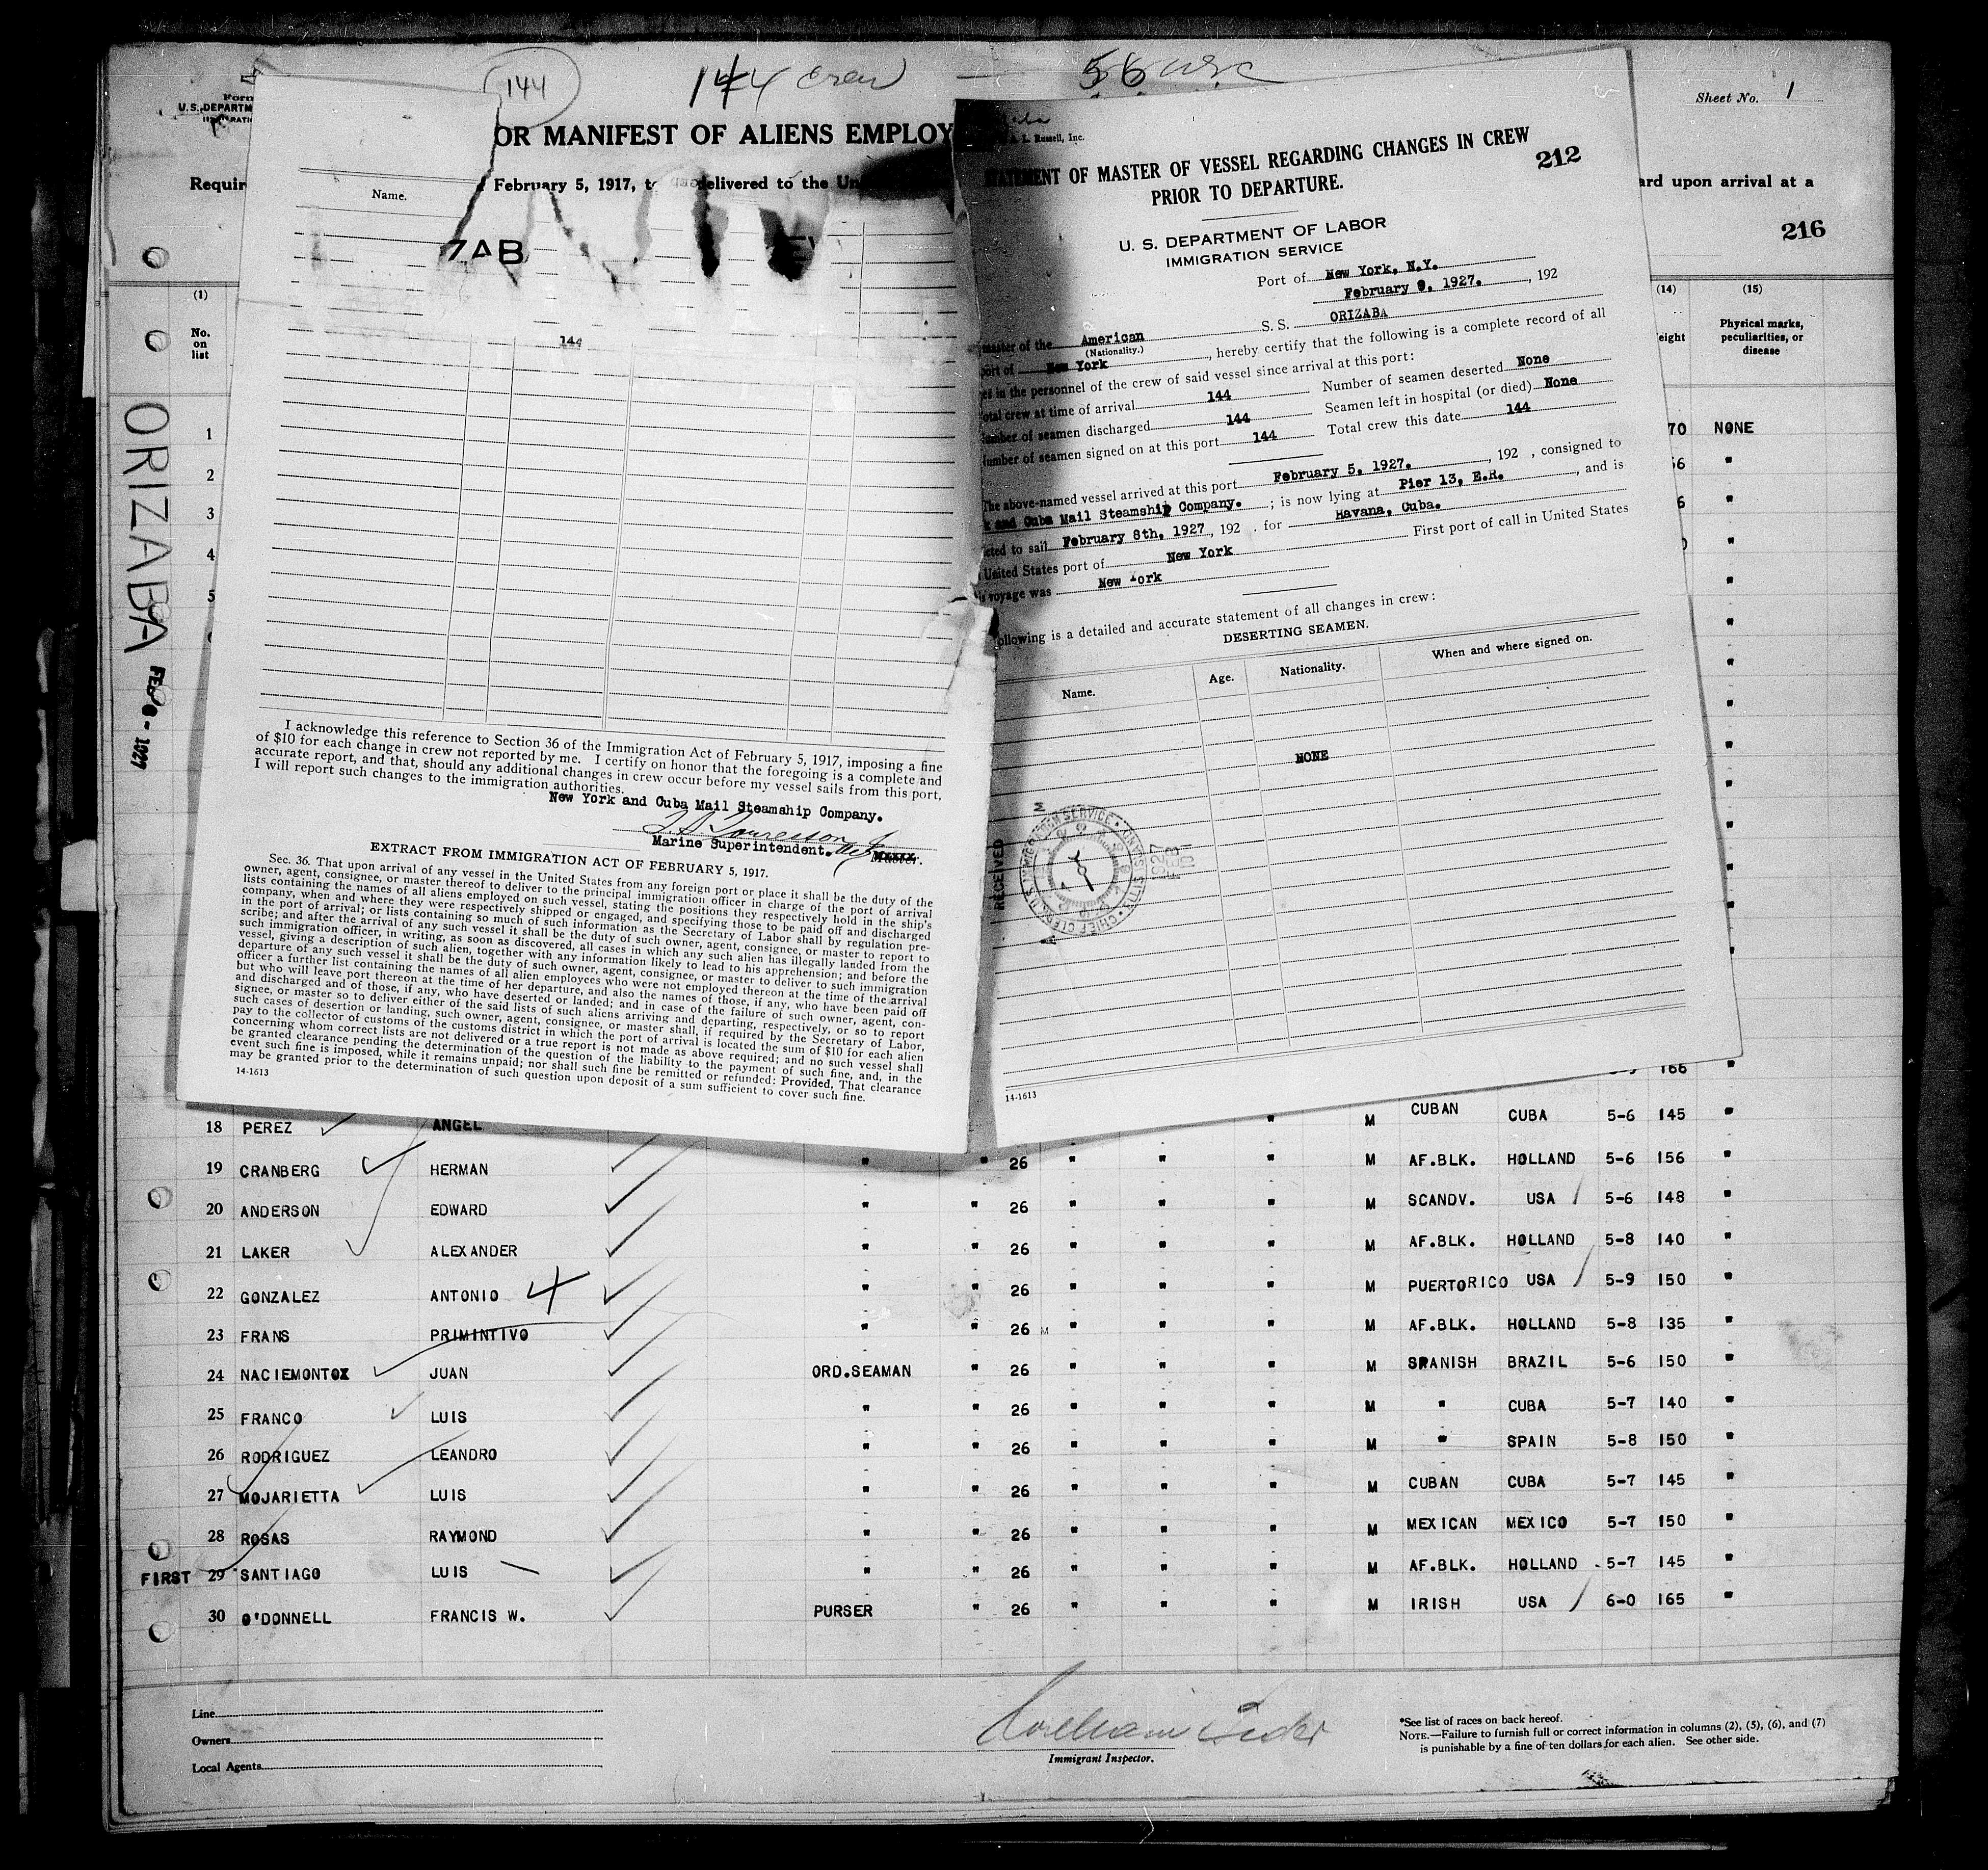 144
144 crew — 56 usc
Sheet No. 1
Form
U.S. DEPARTM
OR MANIFEST OF ALIENS EMPLOY
Requir
February 5, 1917, t delivered to the Un
ard upon arrival at a
216
(1)
(14)
(15)
No. on list
eight
Physical marks, peculiarities, or disease
ORIZABA
1927
1
70 NONE
2
56 "
3
6 "
4
"
5
"
Name.
7AB
144
I acknowledge this reference to Section 36 of the Immigration Act of February 5, 1917, imposing a fine
of $10 for each change in crew not reported by me. I certify on honor that the foregoing is a complete and
accurate report, and that, should any additional changes in crew occur before my vessel sails from this port,
I will report such changes to the immigration authorities.
New York and Cuba Mail Steamship Company.
Marine Superintendent.
Master.
EXTRACT FROM IMMIGRATION ACT OF FEBRUARY 5, 1917.
Sec. 36. That upon arrival of any vessel in the United States from any foreign port or place it shall be the duty of the
owner, agent, consignee, or master thereof to deliver to the principal immigration officer in charge of the port of arrival
lists containing the names of all aliens employed on such vessel, stating the positions they respectively hold in the ship's
company, when and where they were respectively shipped or engaged, and specifying those to be paid off and discharged
in the port of arrival; or lists containing so much of such information as the Secretary of Labor shall by regulation pre-
scribe; and after the arrival of any such vessel it shall be the duty of such owner, agent, consignee, or master to report to
such immigration officer, in writing, as soon as discovered, all cases in which any such alien has illegally landed from the
vessel, giving a description of such alien, together with any information likely to lead to his apprehension; and before the
departure of any such vessel it shall be the duty of such owner, agent, consignee, or master to deliver to such immigration
officer a further list containing the names of all alien employees who were not employed thereon at the time of the arrival
but who will leave port thereon at the time of her departure, and also the names of those, if any, who have been paid off
and discharged and of those, if any, who have deserted or landed; and in case of the failure of such owner, agent, con-
signee, or master so to deliver either of the said lists of such aliens arriving and departing, respectively, or so to report
such cases of desertion or landing, such owner, agent, consignee, or master shall, if required by the Secretary of Labor,
pay to the collector of customs of the customs district in which the port of arrival is located the sum of $10 for each alien
concerning whom correct lists are not delivered or a true report is not made as above required; and no such vessel shall
be granted clearance pending the determination of the question of the liability to the payment of such fine, and, in the
event such fine is imposed, while it remains unpaid; nor shall such fine be remitted or refunded: Provided, That clearance
may be granted prior to the determination of such question upon deposit of a sum sufficient to cover such fine.
14-1613
L. Russell, Inc.
STATEMENT OF MASTER OF VESSEL REGARDING CHANGES IN CREW
PRIOR TO DEPARTURE.
212
U. S. DEPARTMENT OF LABOR
IMMIGRATION SERVICE
Port of New York, N.Y.
February 9, 1927. , 192
master of the American S. S. ORIZABA
(Nationality.)
port of New York , hereby certify that the following is a complete record of all
es in the personnel of the crew of said vessel since arrival at this port:
otal crew at time of arrival 144 Number of seamen deserted None
umber of seamen discharged 144 Seamen left in hospital (or died) None
umber of seamen signed on at this port 144 Total crew this date 144
The above-named vessel arrived at this port February 5, 1927. , 192 , consigned to
k and Cuba Mail Steamship Company. ; is now lying at Pier 13, E.R. , and is
cted to sail February 8th, 1927 , 192 . for Havana, Cuba.
United States port of New York First port of call in United States
s voyage was New York
ollowing is a detailed and accurate statement of all changes in crew:
DESERTING SEAMEN.
Name. Age. Nationality. When and where signed on.
NONE
RECEIVED
1927 FEB 10
14-1613
166 "
18 PEREZ ANGEL " M CUBAN CUBA 5-6 145 "
19 CRANBERG HERMAN " " 26 " " " M AF.BLK. HOLLAND 5-6 156 "
20 ANDERSON EDWARD " " 26 " " " M SCANDV. USA 5-6 148 "
21 LAKER ALEXANDER " " 26 " " " M AF.BLK. HOLLAND 5-8 140 "
22 GONZALEZ ANTONIO " " 26 " " " M PUERTORICO USA 5-9 150 "
23 FRANS PRIMINTIVO " " 26 " " " M AF.BLK. HOLLAND 5-8 135 "
24 NACIEMONTOX JUAN ORD.SEAMAN " 26 " " " M SPANISH BRAZIL 5-6 150 "
25 FRANCO LUIS " " 26 " " " M " CUBA 5-7 140 "
26 RODRIGUEZ LEANDRO " " 26 " " " M " SPAIN 5-8 150 "
27 MOJARIETTA LUIS " " 26 " " " M CUBAN CUBA 5-7 145 "
28 ROSAS RAYMOND " " 26 " " " M MEXICAN MEXICO 5-7 150 "
FIRST 29 SANTIAGO LUIS " " 26 " " " M AF.BLK. HOLLAND 5-7 145 "
30 O'DONNELL FRANCIS W. PURSER " 26 " " " M IRISH USA 6-0 165 "
Line
Owners
Local Agents
Immigrant Inspector.
*See list of races on back hereof.
NOTE.—Failure to furnish full or correct information in columns (2), (5), (6), and (7)
is punishable by a fine of ten dollars for each alien. See other side.